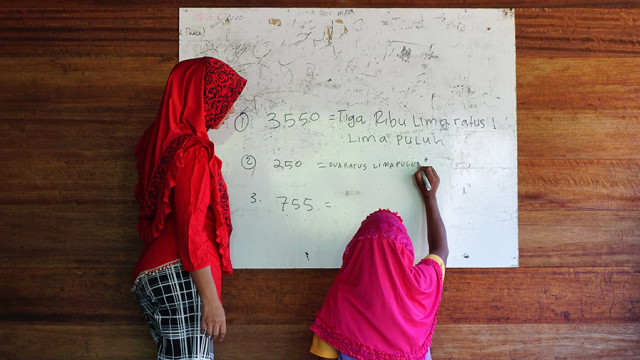 ① 3.550 = Tiga Ribu Limaratus
Lima PuLuh
② 250 = DUARATUS LIMAPULUH
3. 755. =